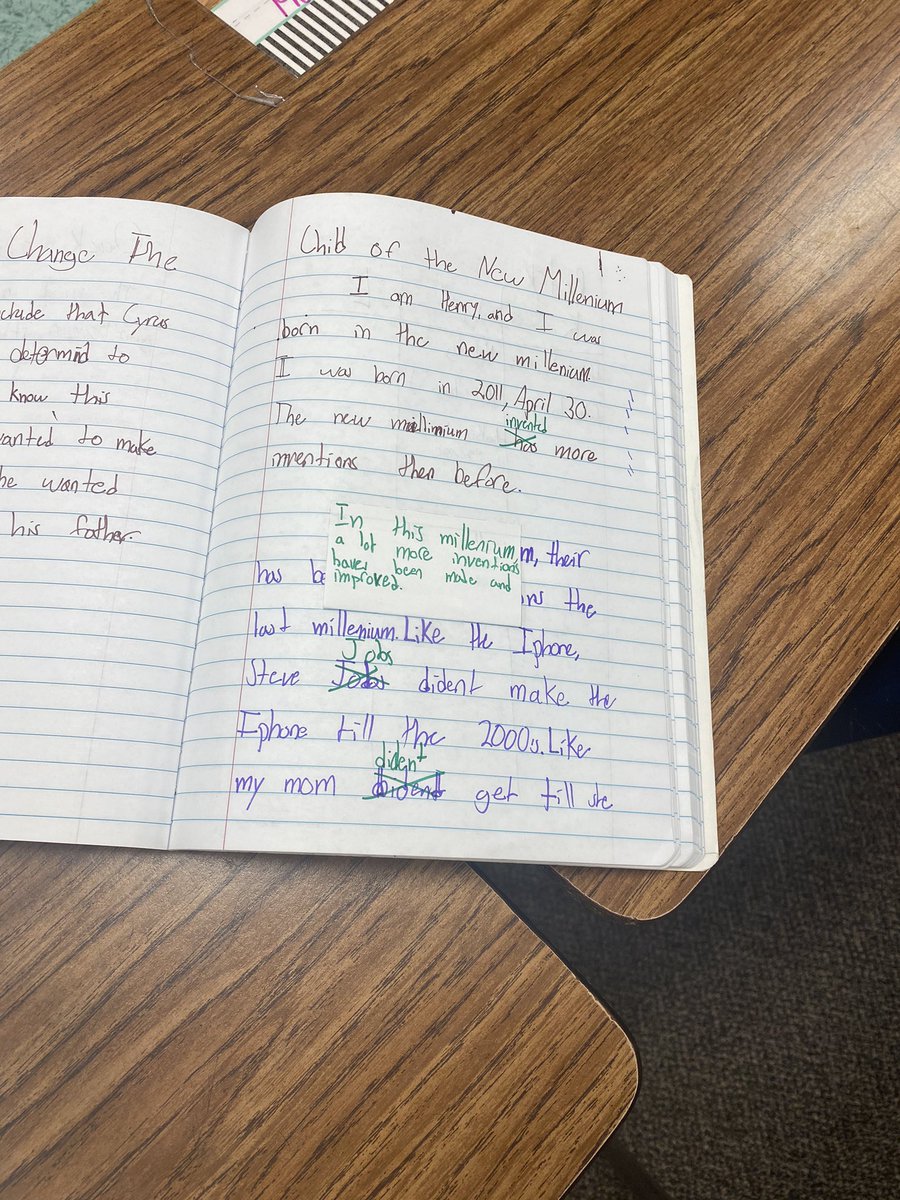 Change The
clude that Cyrus
determind to
know this
wanted to make
he wanted
his father.
Child of the New Millenium
I am Henry, and I was
born in the new millenium.
I was born in 2011, April 30.
The new millinium invented has more
inventions then before.
In this millenium,
a lot more inventions
have been made and
improved.
m, their
has be ns the
last millenium. Like the Iphone,
Steve Jobs Jobs dident make the
Iphone till the 2000s. Like
my mom dident dident get till she